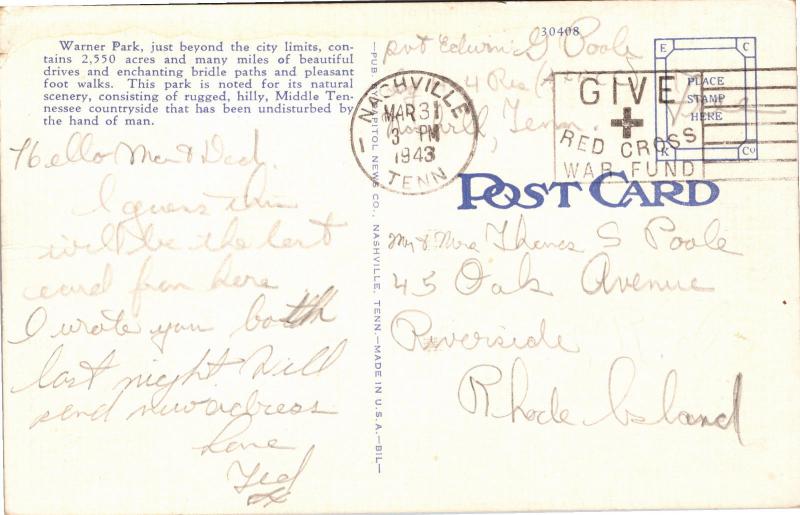 Warner Park, just beyond the city limits, con-
tains 2,550 acres and many miles of beautiful
drives and enchanting bridle paths and pleasant
foot walks. This park is noted for its natural
scenery, consisting of rugged, hilly, Middle Ten-
nessee countryside that has been undisturbed by
the hand of man.
Hello Mom & Dad.
I guess this
will be the last
card from here
I wrote you both
last night Will
send new address
Love
Ted
x
—PUB. BY CAPITOL NEWS CO., NASHVILLE, TENN.—MADE IN U.S.A.—BIL—
30408
Pvt Edwin G Poole
4
Tenn.
Free
NASHVILLE
MAR 31
3 PM
1943
TENN
GIVE
+
RED CROSS
WAR FUND
E C
PLACE
STAMP
HERE
K Co
POST CARD
Mr & Mrs Thomas S Poole
45 Oak Avenue
Riverside
Rhode Island